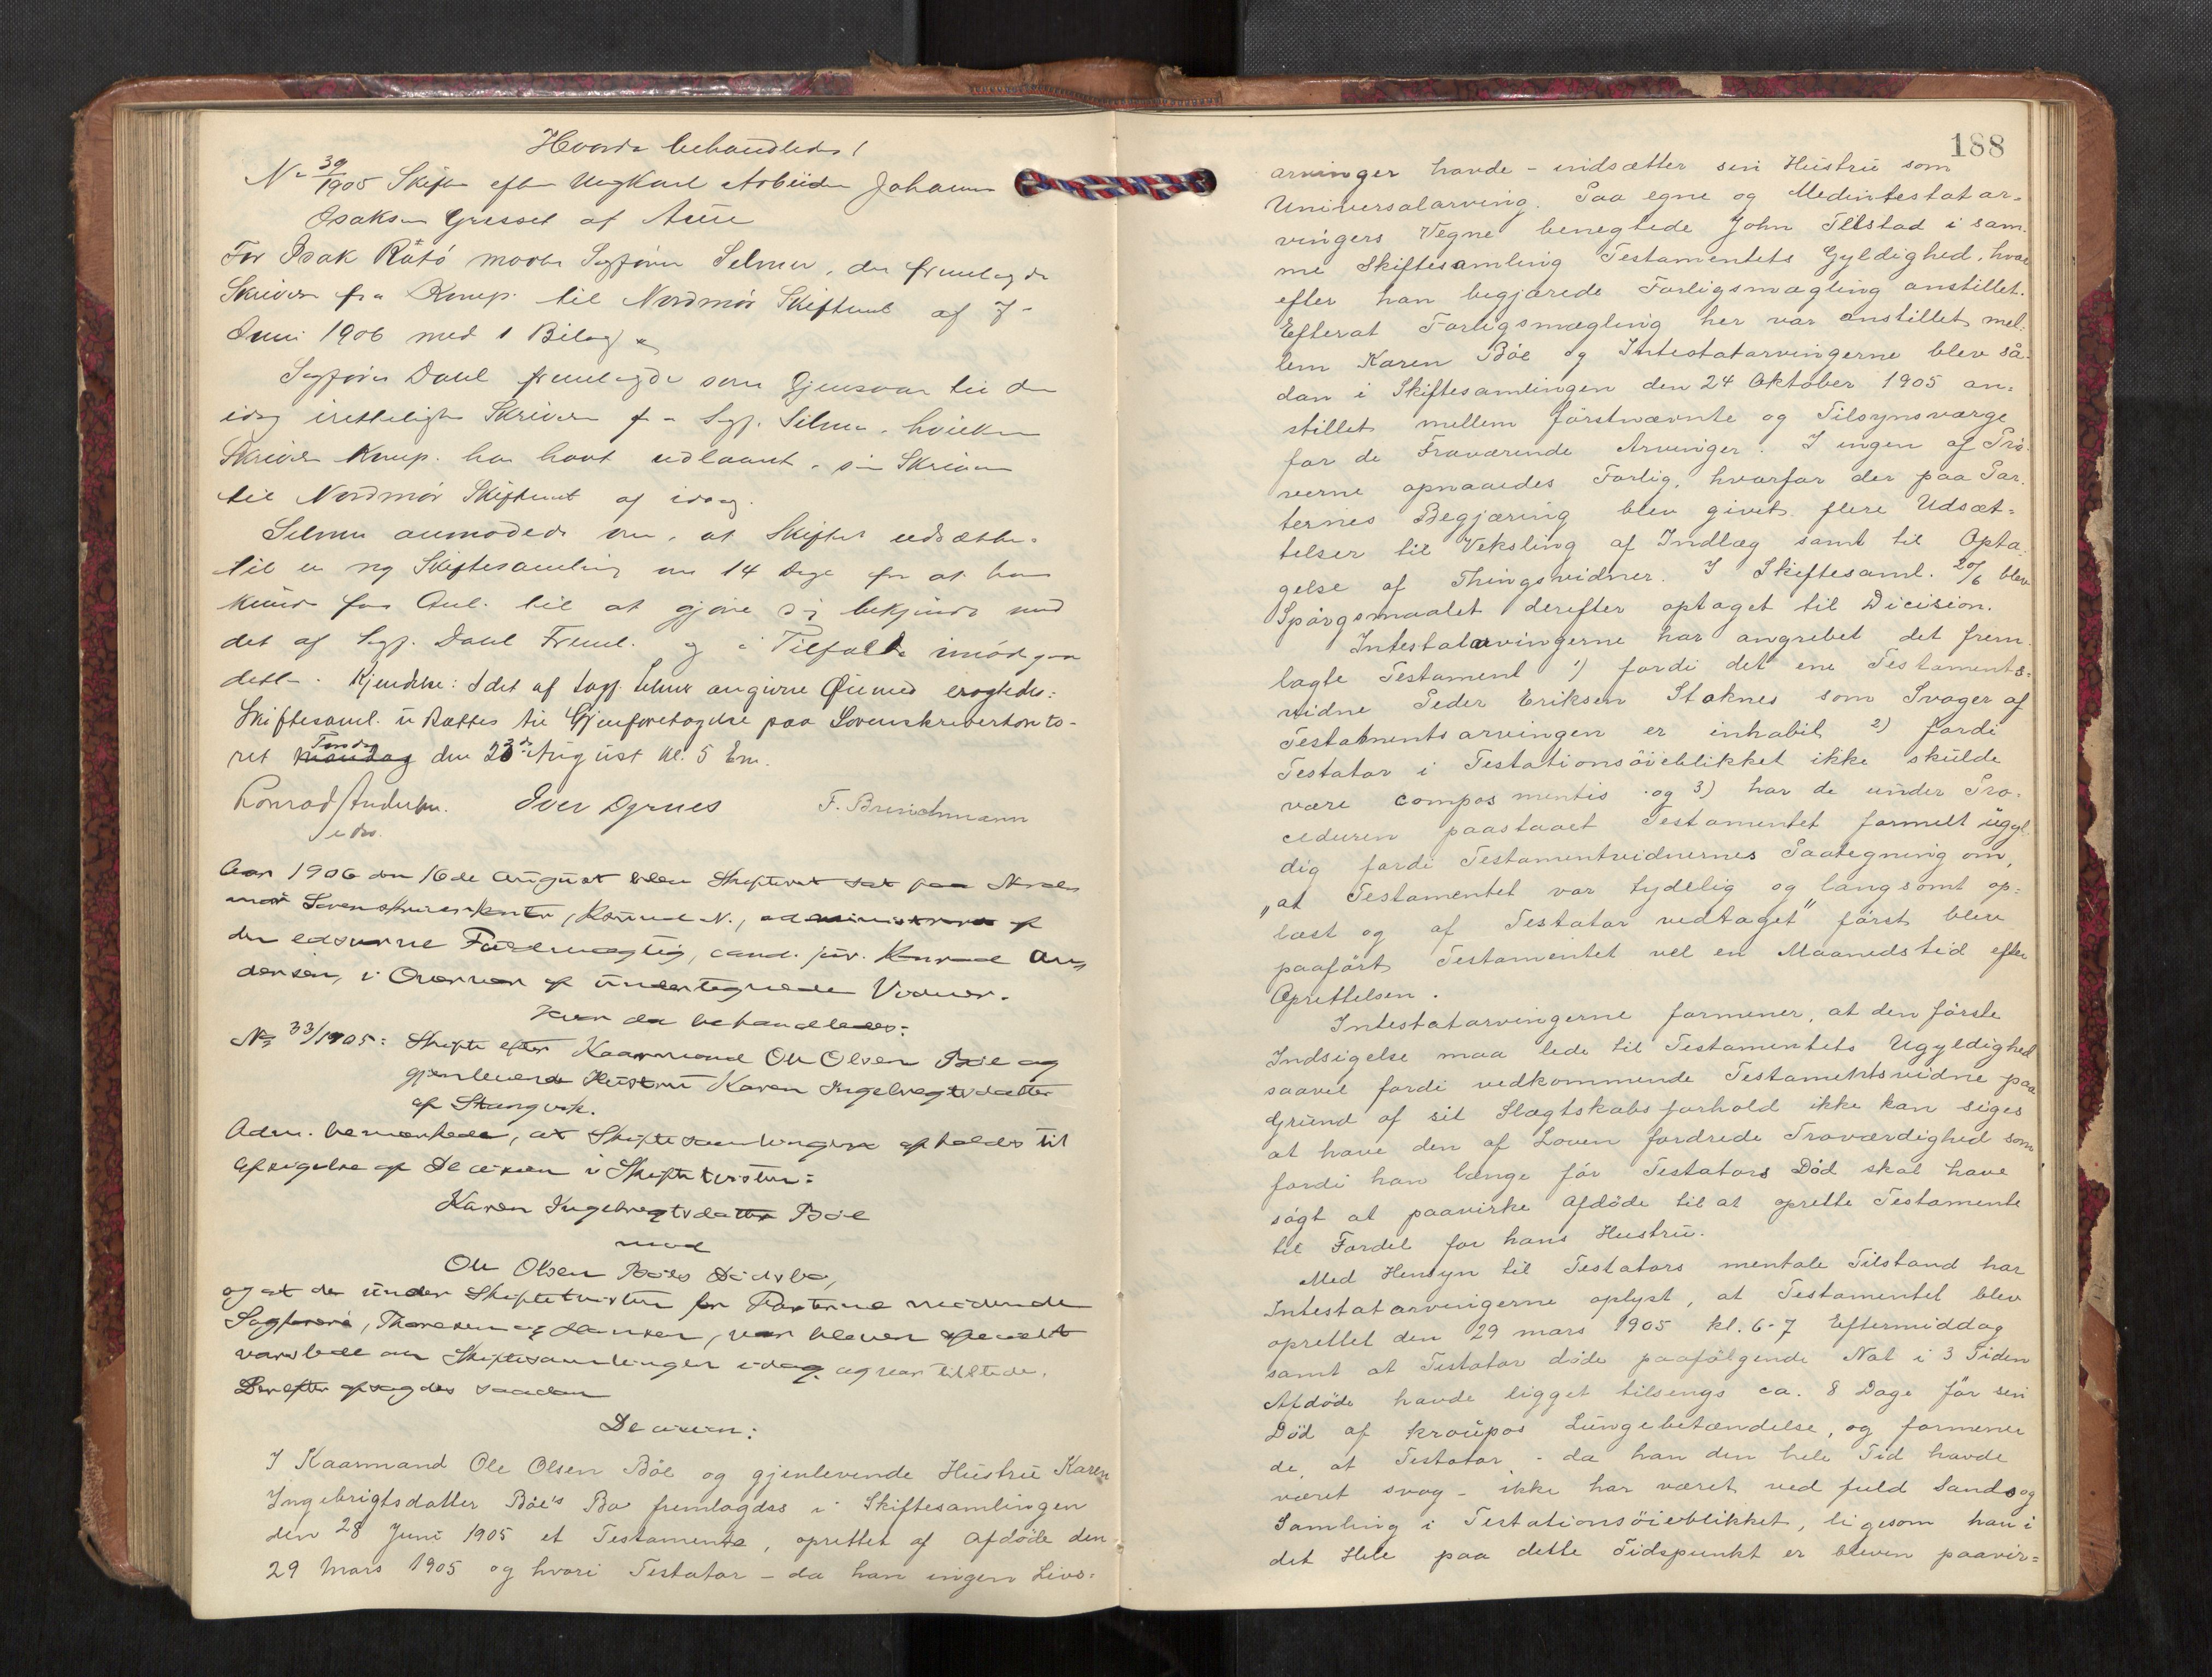 Hvorda behandledes!
No 39/1905 Skifte efter Ungkarl Arbeider Johannes
Isaksen Grisset af Aure
For Isak Råtö mødte Sagfører Selmer, der fremlagde
Skrivelse fra Komp. til Nordmør Skifteret af 7-
Juni 1906 med 1 Bilag
Sagfører Dahl fremlagde som Gjensvar til den
idag iretteligste Skrivelse fra Sagf. Selmer, hvilken
Skrivelse Komp. har havt udlaant, sin Skrivelse
til Nordmør Skifteret af idag.
Selmer anmodede om, at Skiftet udsættes
til en ny Skiftesamling om 14 Dage for at han
kunde faa Anl. til at gjøre sig bekjendt med
det af Sagf. Dahl Freml. og i Tilfælde imødegaa
dette. Kjendelse: I det af Sagf. Selmer angivne Øiemed eragtedes:
Skiftesaml. udsættes til Gjenforetagelse paa Sorenskriverkonto-
ret Mandag Torsdag den 23de August kl. 5 Em.
Konrad Andersen. Iver Dyrnes F. Brinchmann
edsv.
Aar 1906 den 16de August blev Skifteret sat paa Nord-
mør Sorenskriverkontor, Kr.sund N., administreret af
den edsvorne Fuldmægtig, cand. jur. Konrad An-
dersen, i Overvær af undertegnede Vidner.
Hvor da behandledes:
No 33/1905: Skifte efter Kaarmand Ole Olsen Bøe og
gjenlevende Hustru Karen Ingebrigtsdatter
af Stangvik.
Adm. bemærkede, at Skiftesamlingen afholdes til
Afsigelse af Decision i Skiftetvisten:
Karen Ingebrigtsdatter Bøe
mod
Ole Olsen Bøes Dødsbo,
og at de under Skiftetvisten for Parterne mødende
Sagførere, Thoresen og Hansen, var bleven specielt
varslede om Skiftesamlingen idag og var tilstede.
Derefter afsagdes saadan
Decision:
I Kaarmand Ole Olsen Böe og gjenlevende Hustru Karen
Ingebrigtsdatter Böe's Bo fremlagdes i Skiftesamlingen
den 28 Juni 1905 et Testamente, oprettet af Afdöde den
29 Mars 1905 og hvori Testator – da han ingen Livs-
188
arvinger havde – indsætter sin Hustru som
Universalarving. Paa egne og Medintestatar-
vingers Vegne benegtede John Tilstad i sam-
me Skiftesamling Testamentets Gyldighed, hvor
efter han begjærede Forligsmægling anstillet.
Efterat Forligsmægling her var anstillet mel-
lem Karen Böe og Intestatarvingerne blev så-
dan i Skiftesamlingen den 24 Oktober 1905 an-
stillet mellem förstnævnte og Tilsynsværge
for de Fraværende Arvinger. I ingen af Prö-
verne opnaaedes Forlig, hvorfor der paa Par-
ternes Begjæring blev givet flere Udsæt-
telser til Veksling af Indlæg samt til Opta-
gelse af Thingsvidner. I Skiftesaml. 20/6 blev
Spörgsmaalet derefter optaget til Dicision.
Intestatarvingerne har angrebet det frem
lagte Testament 1) fordi det ene Testaments-
vidne Peder Eriksen Stoknes som Svoger af
Testamentsarvingen er inhabil 2) fordi
Testator i Testationsöieblikket ikke skulde
være compos mentis og 3) har de under Pro-
ceduren paastaaet Testamentet formelt ugyl-
dig fordi Testamentvidnernes Paategning om,
„at Testamentet var tydelig og langsomt op-
læst og af Testator vedtaget" först blev
paafört Testamentet vel en Maanedstid efter
Oprettelsen.
Intestatarvingerne formener, at den förste
Indsigelse maa lede til Testamentets Ugyldighed
saavel fordi vedkommende Testamentsvidne paa
Grund af sit Slægtskabsforhold ikke kan siges
at have den af Loven fordrede Troværdighed som
fordi han længe för Testators Död skal have
sögt at paavirke Afdöde til at oprette Testamente
til Fordel for hans Hustru.
Med Hensyn til Testators mentale Tilstand har
Intestatarvingerne oplyst, at Testamentet blev
oprettet den 29 mars 1905 kl. 6-7 Eftermiddag
samt at Testator döde paafölgende Nat i 3 Tiden
Afdöde havde ligget tilsengs ca. 8 Dage för sin
Död af kroupøs Lungebetændelse, og formener
de, at Testator – da han den hele Tid havde
været svag – ikke har været ved fuld Sands og
Samling i Testationsöieblikket, ligesom han i
det Hele paa dette Tidspunkt er bleven paavir-